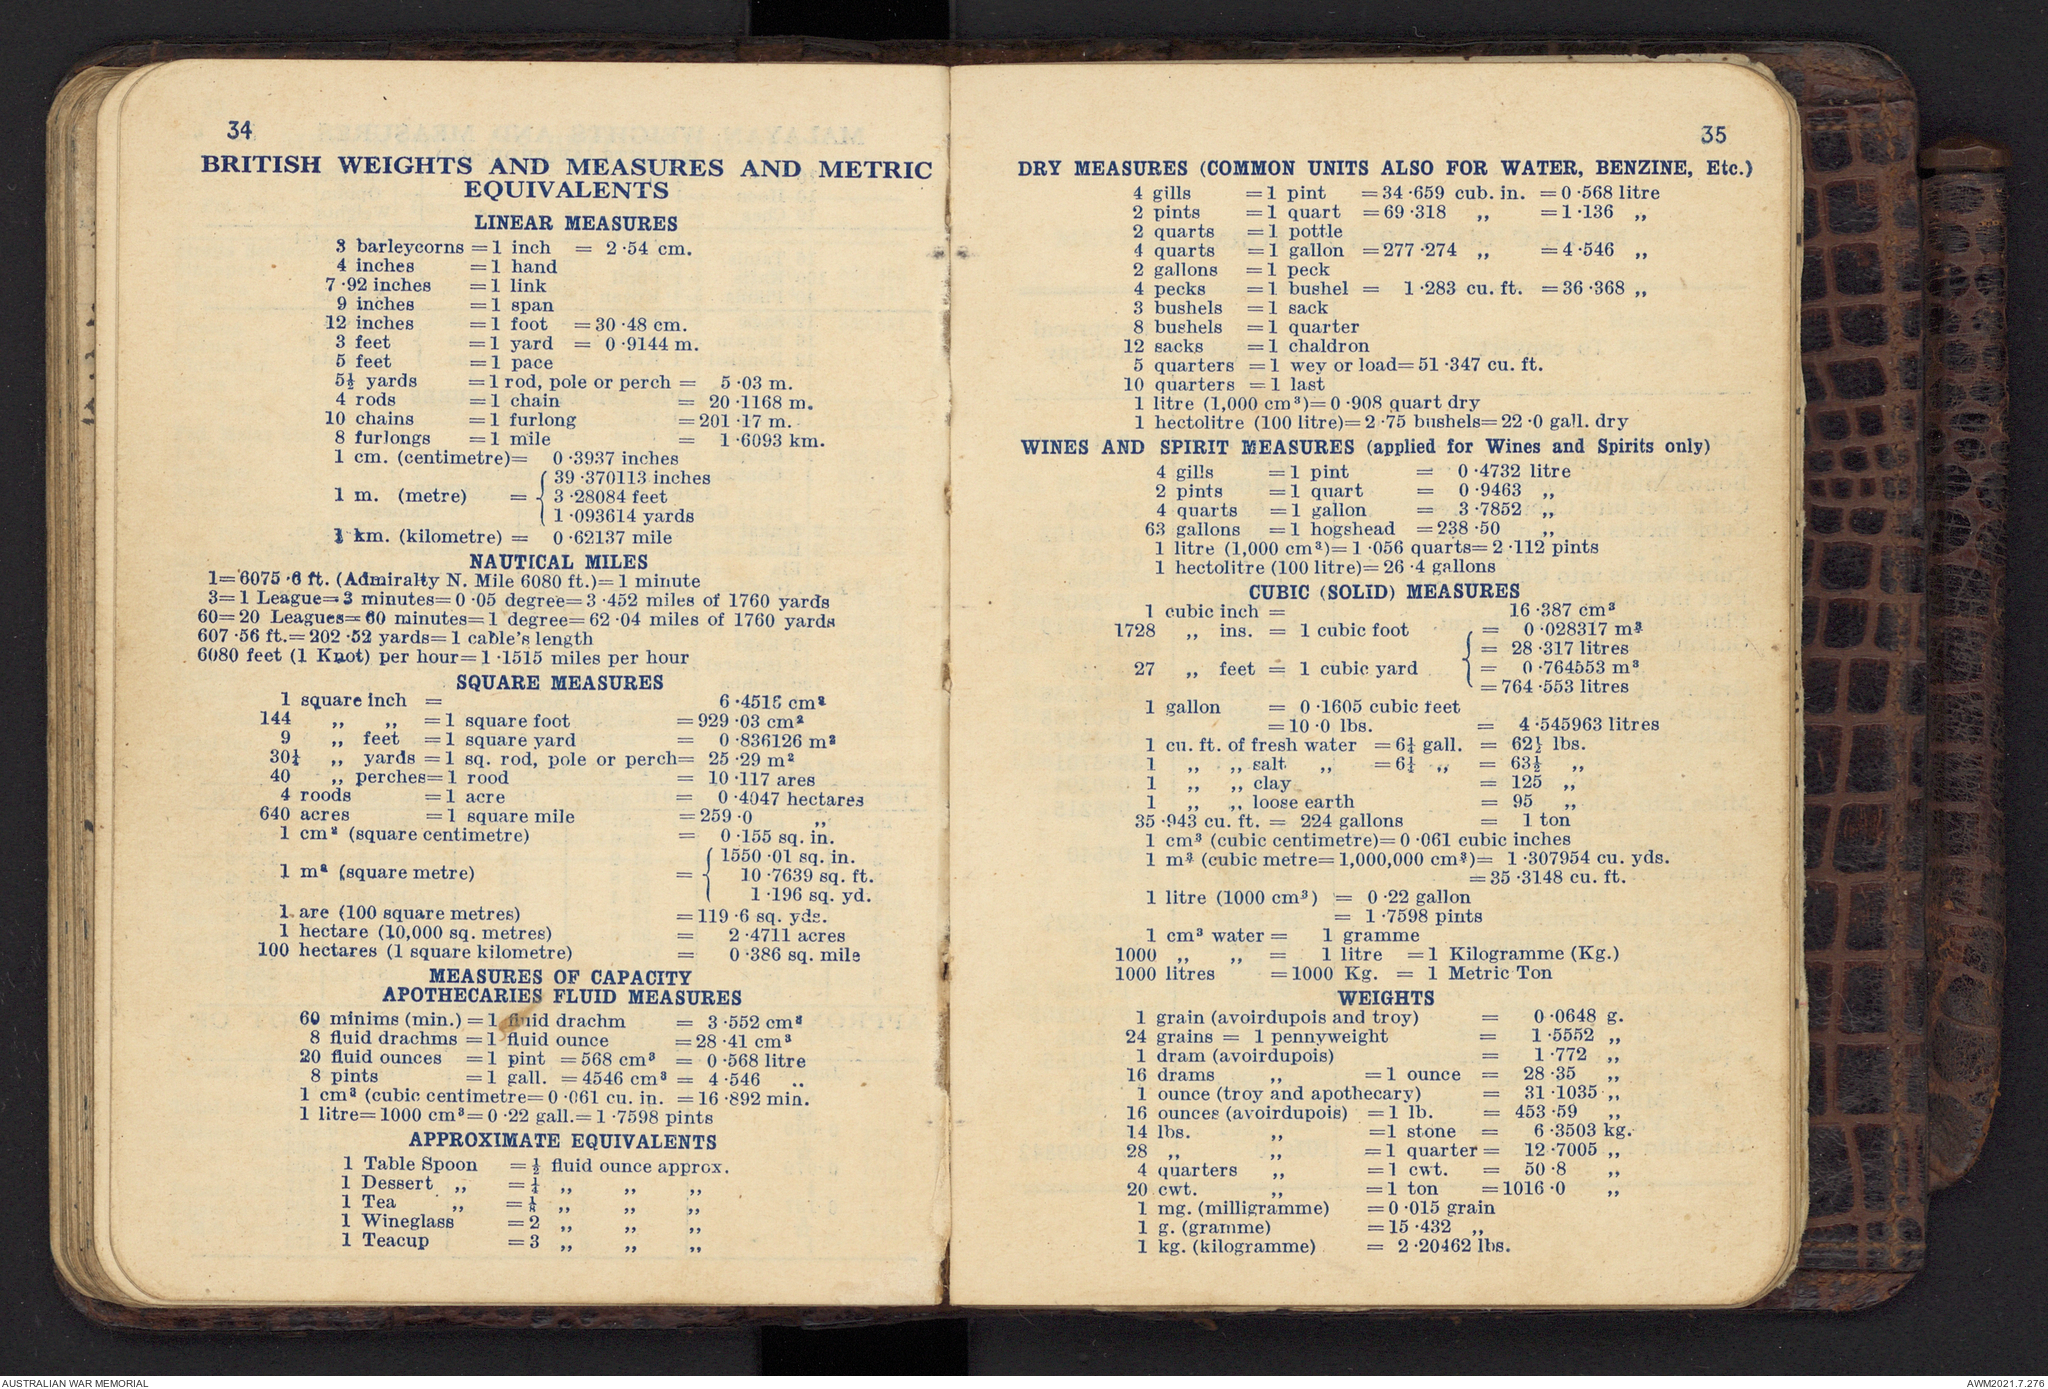 34
BRITISH WEIGHTS AND MEASURES AND METRIC
EQUIVALENTS
LINEAR MEASURES
3 barleycorns = 1 inch = 2·54 cm.
4 inches = 1 hand
7·92 inches = 1 link
9 inches = 1 span
12 inches = 1 foot = 30·48 cm.
3 feet = 1 yard = 0·9144 m.
5 feet = 1 pace
5½ yards = 1 rod, pole or perch = 5·03 m.
4 rods = 1 chain = 20·1168 m.
10 chains = 1 furlong = 201·17 m.
8 furlongs = 1 mile = 1·6093 km.
1 cm. (centimetre) = 0·3937 inches
39·370113 inches
1 m. (metre) = { 3·28084 feet
1·093614 yards
1 km. (kilometre) = 0·62137 mile
NAUTICAL MILES
1=6075·6 ft. (Admiralty N. Mile 6080 ft.)=1 minute
3=1 League=3 minutes=0·05 degree=3·452 miles of 1760 yards
60=20 Leagues=60 minutes=1 degree=62·04 miles of 1760 yards
607·56 ft.=202·52 yards=1 cable's length
6080 feet (1 Knot) per hour=1·1515 miles per hour
SQUARE MEASURES
1 square inch = 6·4516 cm²
144 „ „ = 1 square foot = 929·03 cm²
9 „ feet = 1 square yard = 0·836126 m²
30¼ „ yards = 1 sq. rod, pole or perch = 25·29 m²
40 „ perches = 1 rood = 10·117 ares
4 roods = 1 acre = 0·4047 hectares
640 acres = 1 square mile = 259·0 „
1 cm² (square centimetre) = 0·155 sq. in.
1550·01 sq. in.
1 m² (square metre) = { 10·7639 sq. ft.
1·196 sq. yd.
1 are (100 square metres) = 119·6 sq. yds.
1 hectare (10,000 sq. metres) = 2·4711 acres
100 hectares (1 square kilometre) = 0·386 sq. mile
MEASURES OF CAPACITY
APOTHECARIES FLUID MEASURES
60 minims (min.) = 1 fluid drachm = 3·552 cm³
8 fluid drachms = 1 fluid ounce = 28·41 cm³
20 fluid ounces = 1 pint = 568 cm³ = 0·568 litre
8 pints = 1 gall. = 4546 cm³ = 4·546 „
1 cm³ (cubic centimetre=0·061 cu. in. = 16·892 min.
1 litre=1000 cm³=0·22 gall.=1·7598 pints
APPROXIMATE EQUIVALENTS
1 Table Spoon = ½ fluid ounce approx.
1 Dessert „ = ¼ „ „ „
1 Tea „ = ⅛ „ „ „
1 Wineglass = 2 „ „ „
1 Teacup = 3 „ „ „
35
DRY MEASURES (COMMON UNITS ALSO FOR WATER, BENZINE, Etc.)
4 gills = 1 pint = 34·659 cub. in. = 0·568 litre
2 pints = 1 quart = 69·318 „ = 1·136 „
2 quarts = 1 pottle
4 quarts = 1 gallon = 277·274 „ = 4·546 „
2 gallons = 1 peck
4 pecks = 1 bushel = 1·283 cu. ft. = 36·368 „
3 bushels = 1 sack
8 bushels = 1 quarter
12 sacks = 1 chaldron
5 quarters = 1 wey or load=51·347 cu. ft.
10 quarters = 1 last
1 litre (1,000 cm³)=0·908 quart dry
1 hectolitre (100 litre)=2·75 bushels=22·0 gall. dry
WINES AND SPIRIT MEASURES (applied for Wines and Spirits only)
4 gills = 1 pint = 0·4732 litre
2 pints = 1 quart = 0·9463 „
4 quarts = 1 gallon = 3·7852 „
63 gallons = 1 hogshead = 238·50 „
1 litre (1,000 cm³)=1·056 quarts=2·112 pints
1 hectolitre (100 litre)=26·4 gallons
CUBIC (SOLID) MEASURES
1 cubic inch = 16·387 cm³
1728 „ ins. = 1 cubic foot = 0·028317 m³
= 28·317 litres
27 „ feet = 1 cubic yard = 0·764553 m³
= 764·553 litres
1 gallon = 0·1605 cubic feet
= 10·0 lbs. = 4·545963 litres
1 cu. ft. of fresh water = 6¼ gall. = 62½ lbs.
1 „ „ salt „ = 6¼ „ = 63½ „
1 „ „ clay = 125 „
1 „ „ loose earth = 95 „
35·943 cu. ft. = 224 gallons = 1 ton
1 cm³ (cubic centimetre)=0·061 cubic inches
1 m³ (cubic metre=1,000,000 cm³)= 1·307954 cu. yds.
= 35·3148 cu. ft.
1 litre (1000 cm³) = 0·22 gallon
= 1·7598 pints
1 cm³ water = 1 gramme
1000 „ „ = 1 litre = 1 Kilogramme (Kg.)
1000 litres = 1000 Kg. = 1 Metric Ton
WEIGHTS
1 grain (avoirdupois and troy) = 0·0648 g.
24 grains = 1 pennyweight = 1·5552 „
1 dram (avoirdupois) = 1·772 „
16 drams „ = 1 ounce = 28·35 „
1 ounce (troy and apothecary) = 31·1035 „
16 ounces (avoirdupois) = 1 lb. = 453·59 „
14 lbs. „ = 1 stone = 6·3503 kg.
28 „ „ = 1 quarter = 12·7005 „
4 quarters „ = 1 cwt. = 50·8 „
20 cwt. „ = 1 ton = 1016·0 „
1 mg. (milligramme) = 0·015 grain
1 g. (gramme) = 15·432 „
1 kg. (kilogramme) = 2·20462 lbs.
AUSTRALIAN WAR MEMORIAL
AWM2021.7.276